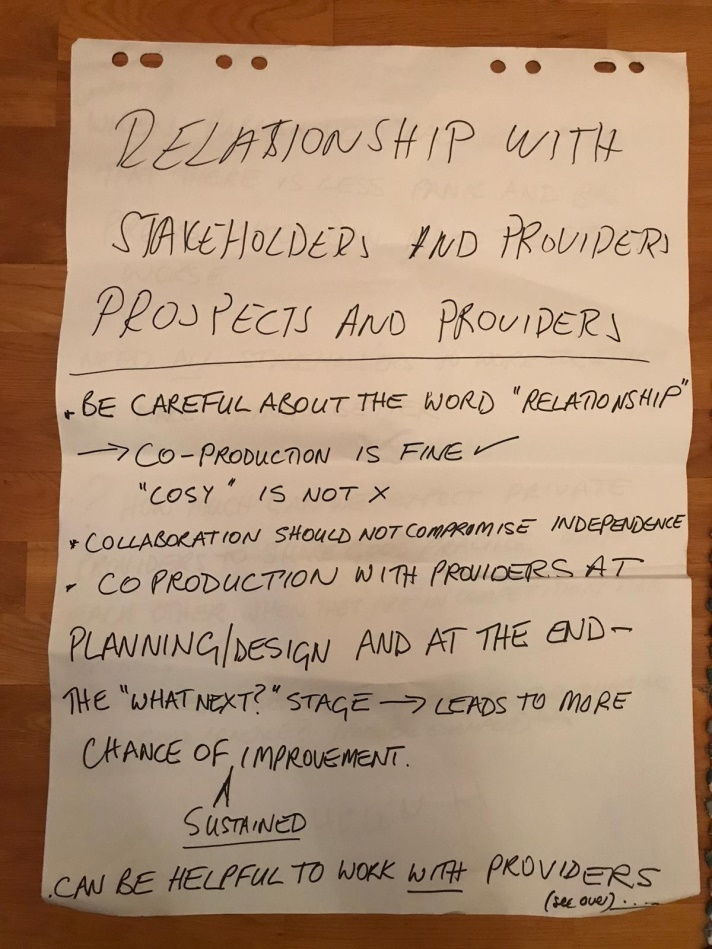 RELATIONSHIP WITH
STAKEHOLDERS AND PROVIDERS
PROSPECTS AND PROVIDERS
• BE CAREFUL ABOUT THE WORD "RELATIONSHIP"
→ CO-PRODUCTION IS FINE ✓
"COSY" IS NOT X
• COLLABORATION SHOULD NOT COMPROMISE INDEPENDENCE
• CO PRODUCTION WITH PROVIDERS AT
PLANNING/DESIGN AND AT THE END –
THE "WHAT NEXT?" STAGE → LEADS TO MORE
CHANCE OF IMPROVEMENT.
SUSTAINED
. CAN BE HELPFUL TO WORK WITH PROVIDERS
(see over)....